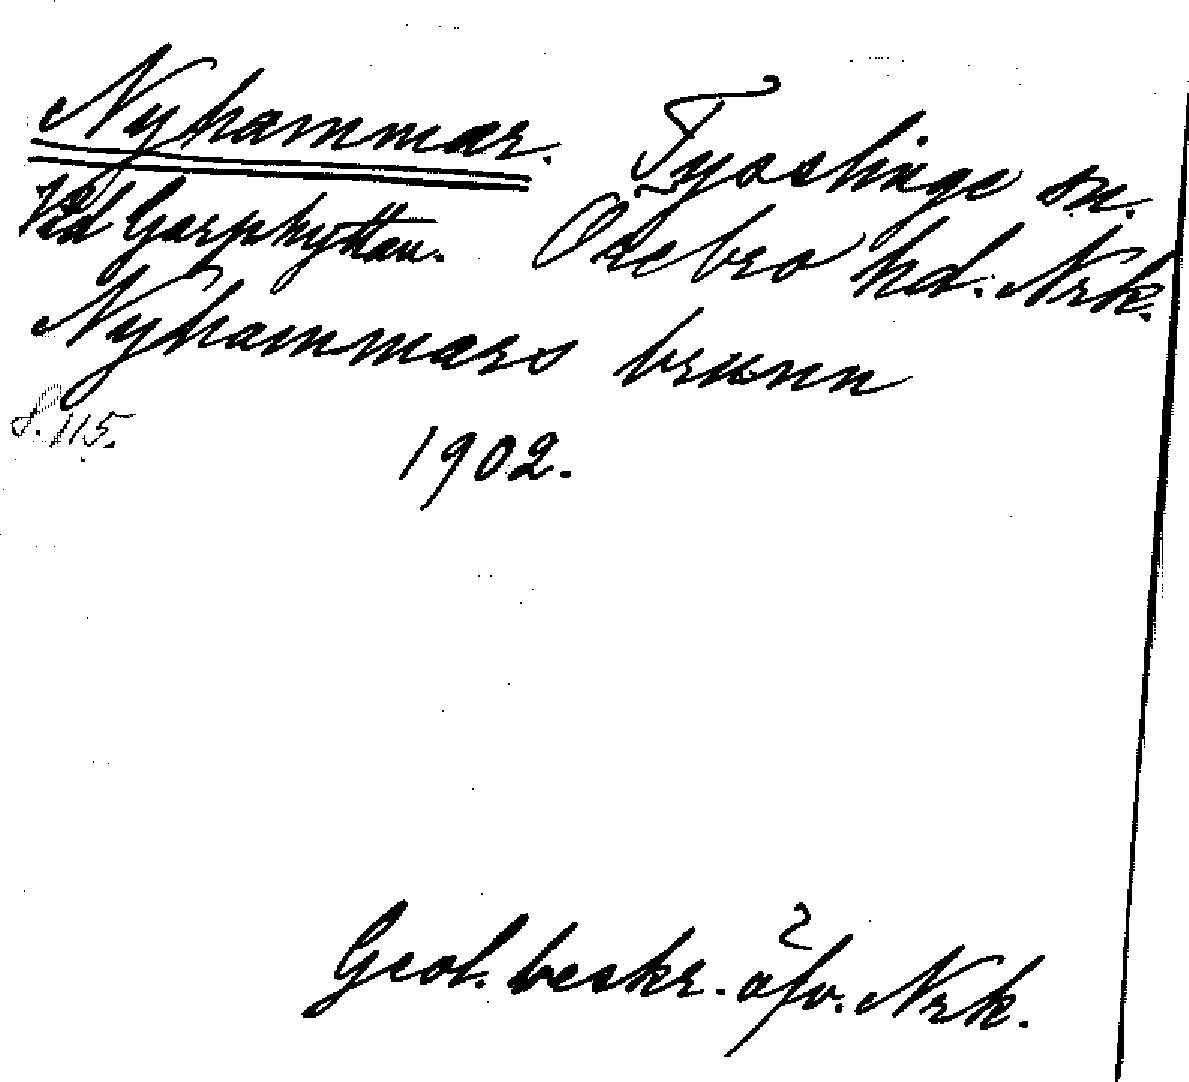 Nyhammar. Tysslinge sn.
Vid Garphyttan. Örebro hd. Nrk.
Nyhammars brunn
S. 115.
1902.
Geol. beskr. öfv. Nrk.